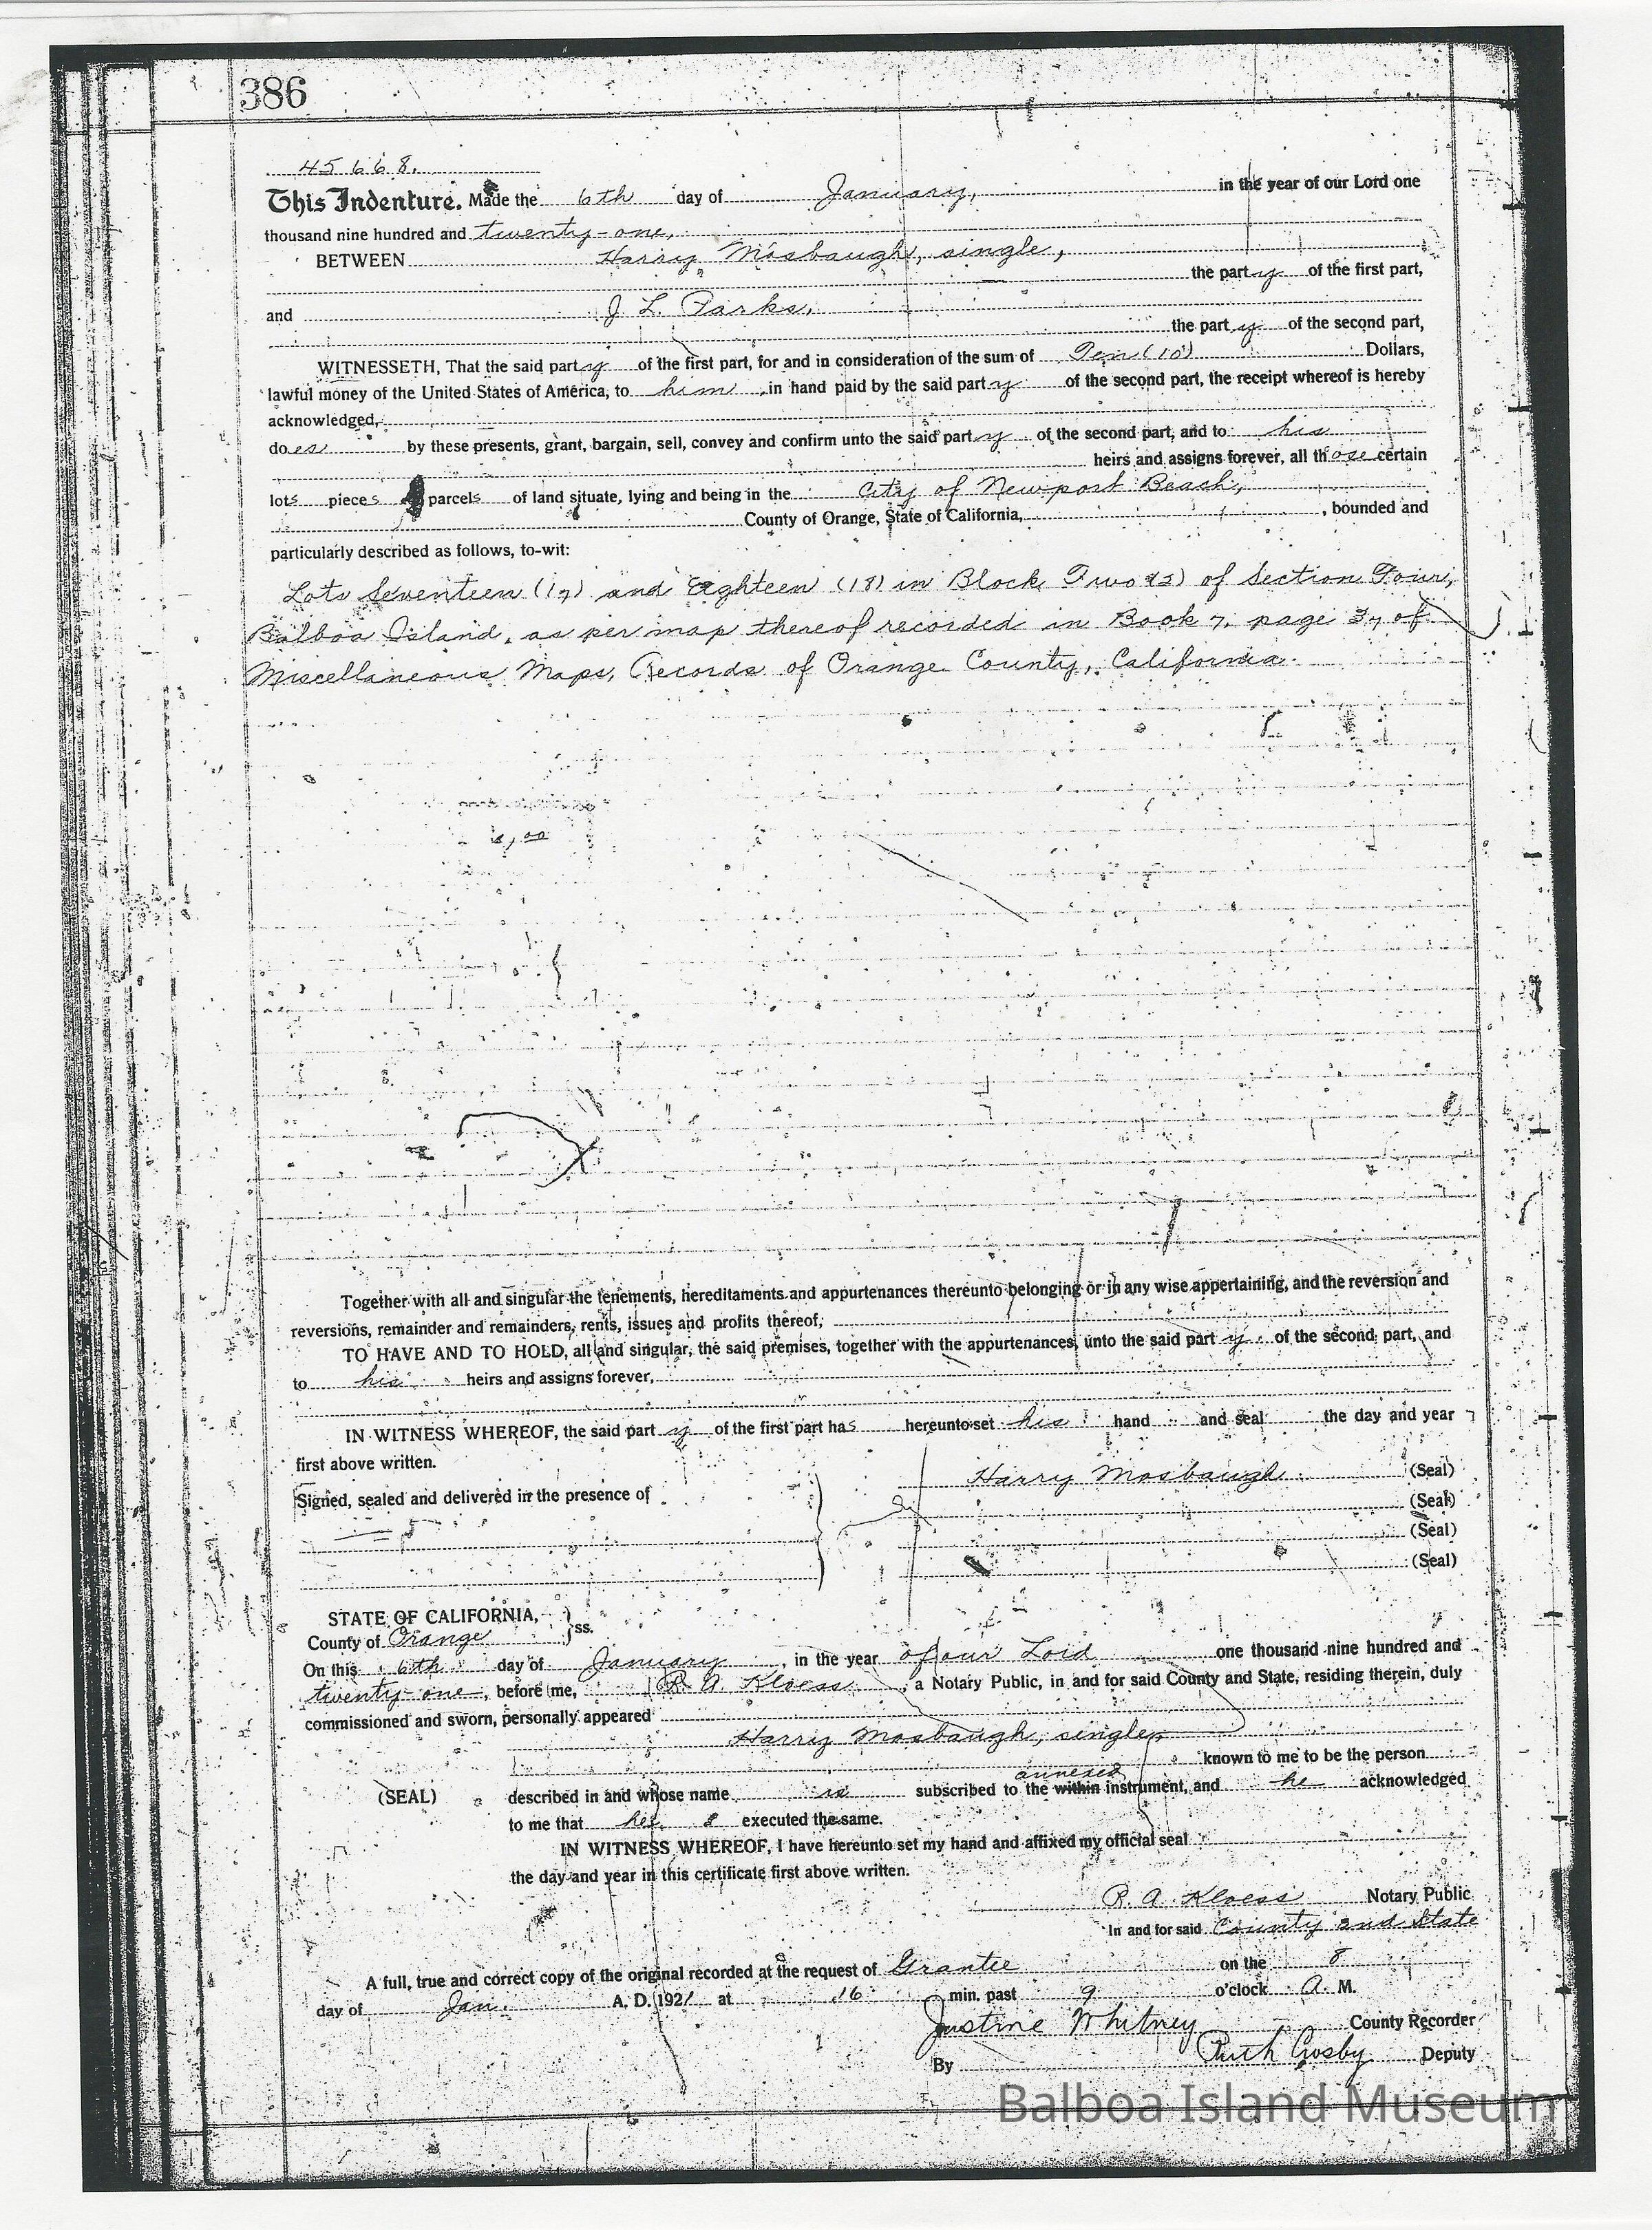 386
45668.
This Indenture. Made the 6th day of January, in the year of our Lord one
thousand nine hundred and twenty-one,
BETWEEN Harry Mosbaugh, single,
the party of the first part,
and J. L. Parks,
the party of the second part,
WITNESSETH, That the said party of the first part, for and in consideration of the sum of Ten (10) Dollars,
lawful money of the United States of America, to him, in hand paid by the said party of the second part, the receipt whereof is hereby
acknowledged,
does by these presents, grant, bargain, sell, convey and confirm unto the said party of the second part, and to his
heirs and assigns forever, all those certain
lots pieces parcels of land situate, lying and being in the City of Newport Beach,
County of Orange, State of California, , bounded and
particularly described as follows, to-wit:
Lots Seventeen (17) and Eighteen (18) in Block Two (2) of Section Four,
Balboa Island, as per map thereof recorded in Book 7, page 37 of
Miscellaneous Maps, Records of Orange County, California.
Together with all and singular the tenements, hereditaments and appurtenances thereunto belonging or in any wise appertaining, and the reversion and
reversions, remainder and remainders, rents, issues and profits thereof,
TO HAVE AND TO HOLD, all and singular, the said premises, together with the appurtenances, unto the said party of the second part, and
to his heirs and assigns forever,
IN WITNESS WHEREOF, the said party of the first part has hereunto set his hand and seal the day and year
first above written.
Harry Mosbaugh (Seal)
Signed, sealed and delivered in the presence of
(Seal)
(Seal)
(Seal)
STATE OF CALIFORNIA, } ss.
County of Orange
On this 6th day of January, in the year of our Lord one thousand nine hundred and
twenty-one, before me, R. A. Kloess, a Notary Public, in and for said County and State, residing therein, duly
commissioned and sworn, personally appeared
Harry Mosbaugh, single,
known to me to be the person
annexed
(SEAL) described in and whose name is subscribed to the within instrument, and he acknowledged
to me that he executed the same.
IN WITNESS WHEREOF, I have hereunto set my hand and affixed my official seal
the day and year in this certificate first above written.
R. A. Kloess Notary Public
In and for said County and State
A full, true and correct copy of the original recorded at the request of Grantee on the 8
day of Jan. A. D. 1921 at 16 min. past 9 o'clock A. M.
Justine Whitney County Recorder
By Ruth Crosby Deputy
Balboa Island Museum